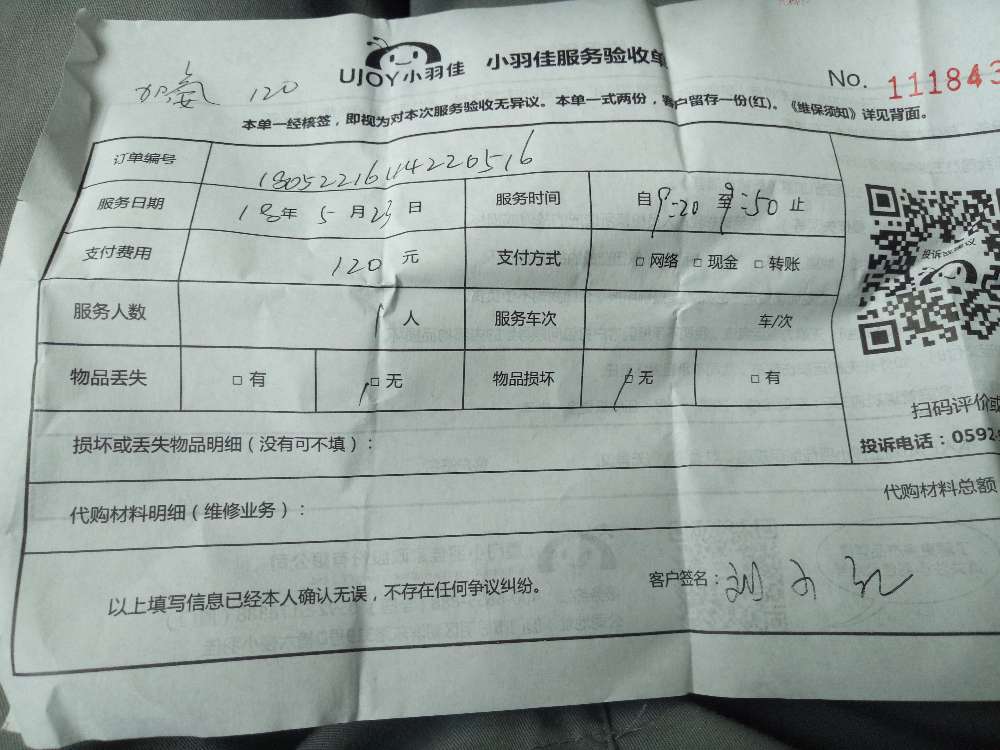 UJOY小羽佳 小羽佳服务验收单
No. 111843
加氨 120
本单一经核签，即视为对本次服务验收无异议。本单一式两份，客户留存一份(红)。《维保须知》详见背面。
订单编号 1805221614220516
服务日期 18年 5月 23日 服务时间 自9:20 至9:50 止
支付费用 120元 支付方式 □ 网络 □ 现金 □ 转账
服务人数 1人 服务车次 车/次
物品丢失 □ 有 □ 无 物品损坏 □ 无 □ 有
投诉或建议
扫码评价或
投诉电话：0592-
损坏或丢失物品明细（没有可不填）：
代购材料明细（维修业务）： 代购材料总额
以上填写信息已经本人确认无误，不存在任何争议纠纷。 客户签名：